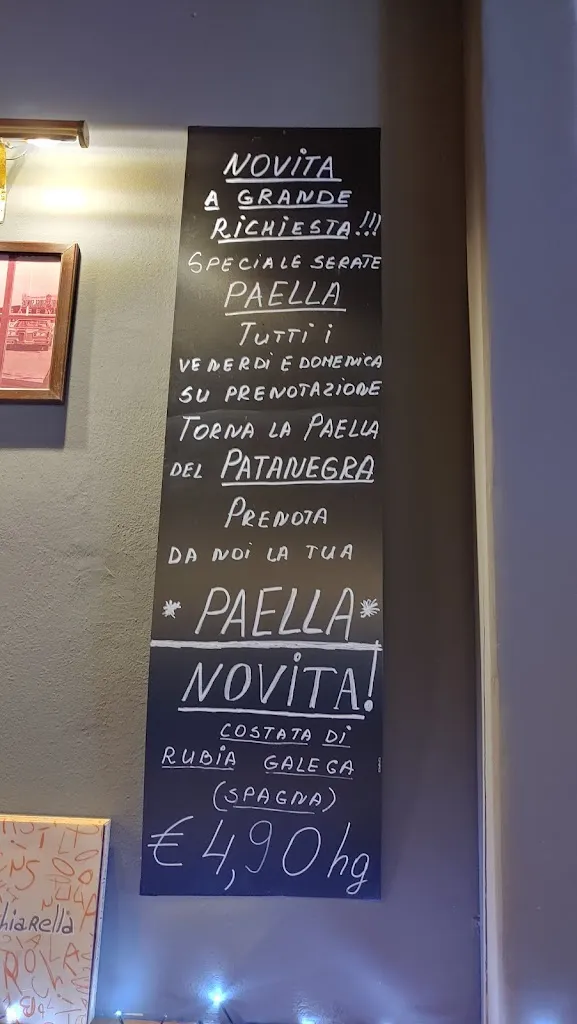 NOVITA
A GRANDE
RICHIESTA!!!
SPECIALE SERATE
PAELLA
TUTTI i
VENERDI E DOMENICA
SU PRENOTAZIONE
TORNA LA PAELLA
DEL PATANEGRA
PRENOTA
DA NOI LA TUA
* PAELLA *
NOVITA!
COSTATA DI
RUBIA GALEGA
(SPAGNA)
€ 4,90 hg
hiaRella